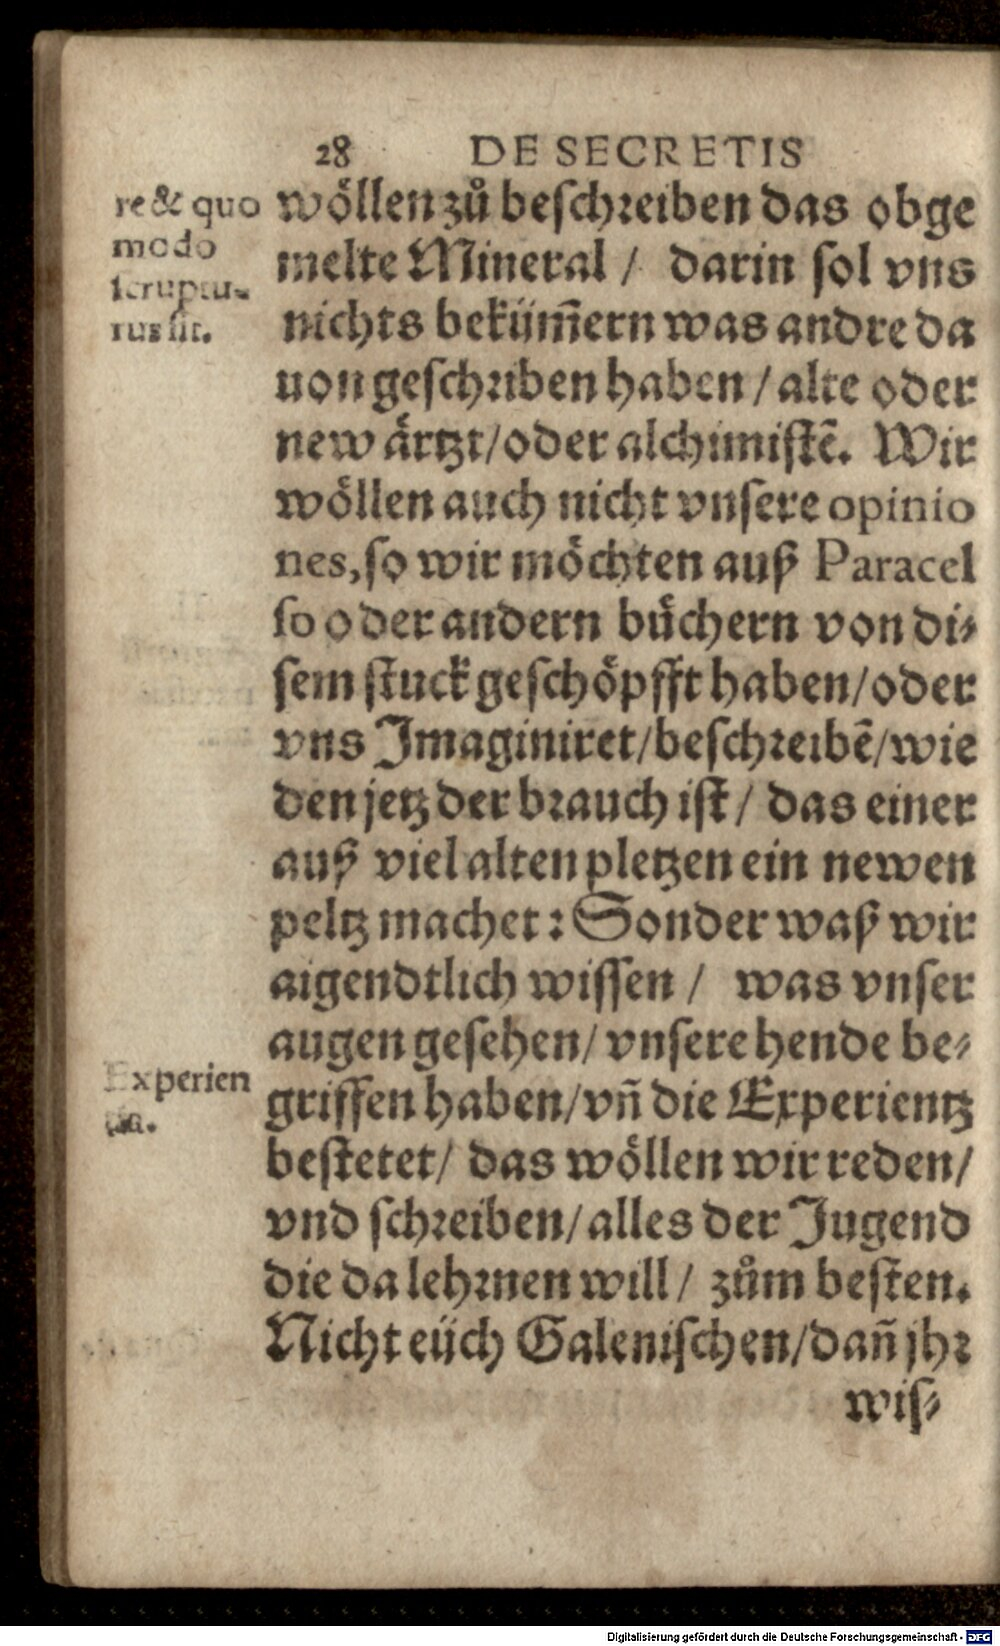 28 DE SECRETIS
re & quo
modo
scriptu-
rus sit.
wöllen zů beschreiben das obge
melte Mineral / darin sol vns
nichts beküm̃ern was andre da
uon geschriben haben / alte oder
new ärtzt / oder alchimistē. Wir
wöllen auch nicht vnsere opinio
nes, so wir möchten auß Paracel
so oder andern büchern von di⸗
sem stuck geschöpfft haben / oder
vns Imaginiret / beschreibē / wie
den jetz der brauch ist / das einer
auß viel alten pletzen ein newen
peltz machet : Sonder waß wir
aigendtlich wissen / was vnser
augen gesehen / vnsere hende be⸗
Experien
tia.
griffen haben / vñ die Experientz
bestetet / das wöllen wir reden /
vnd schreiben / alles der Jugend
die da lehrnen will / zům besten.
Nicht eüch Galenischen / dañ jhr
wis⸗
Digitalisierung gefördert durch die Deutsche Forschungsgemeinschaft - DFG